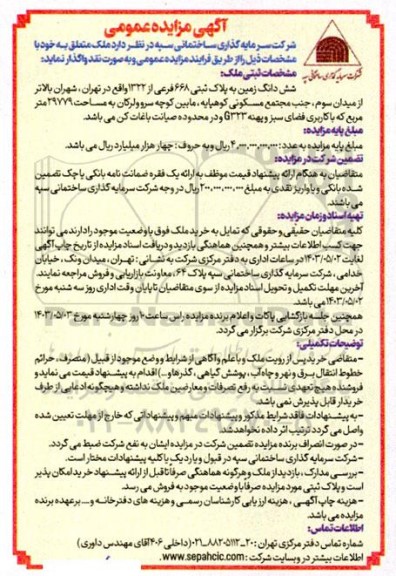 آگهی مزایده عمومی
شرکت سرمایه گذاری ساختمانی سپه در نظر دارد ملک متعلق به خود با
مشخصات ذیل را از طریق فرایند مزایده عمومی و به صورت نقد واگذار نماید:
شرکت سرمایه گذاری ساختمانی سپه
مشخصات ثبتی ملک:
شش دانگ زمین به پلاک ثبتی ۶۶۸ فرعی از ۱۳۲۲ واقع در تهران، شهران بالاتر
از میدان سوم، جنب مجتمع مسکونی کوهپایه، مابین کوچه سرو و لرگان به مساحت ۲۹۷۷۹ متر
مربع که با کاربری فضای سبز و پهنه G۳۲۳ و در محدوده صیانت باغات کن می باشد.
مبلغ پایه مزایده:
مبلغ پایه مزایده به عدد: ۴،۰۰۰،۰۰۰،۰۰۰،۰۰۰ ریال و به حروف: چهار هزار میلیارد ریال می باشد.
تضمین شرکت در مزایده:
متقاضیان به هنگام ارائه پیشنهاد قیمت موظف به ارائه یک فقره ضمانت نامه بانکی یا چک تضمین
شده بانکی و یا واریز نقدی به مبلغ ۲۰۰،۰۰۰،۰۰۰،۰۰۰ ریال در وجه شرکت سرمایه گذاری ساختمانی سپه
می باشند.
تهیه اسناد و زمان مزایده:
کلیه متقاضیان حقیقی و حقوقی که تمایل به خرید ملک فوق با وضعیت موجود را دارند می توانند
جهت کسب اطلاعات بیشتر و همچنین هماهنگی بازدید و دریافت اسناد مزایده از تاریخ چاپ آگهی
لغایت ۱۴۰۳/۰۵/۰۲ در ساعات اداری به دفتر مرکزی شرکت به نشانی: تهران، میدان ونک، خیابان
خدامی، شرکت سرمایه گذاری ساختمانی سپه پلاک ۶۴، معاونت بازاریابی و فروش مراجعه نمایند.
آخرین مهلت تکمیل و تحویل اسناد مزایده از سوی متقاضیان تا پایان وقت اداری روز سه شنبه مورخ
۱۴۰۳/۰۵/۰۲ می باشد.
همچنین جلسه بازگشایی پاکات و اعلام برنده مزایده راس ساعت ۱۰ روز چهارشنبه مورخ ۱۴۰۳/۰۵/۰۳
در محل دفتر مرکزی شرکت برگزار می گردد.
توضیحات تکمیلی:
- متقاضی خرید پس از رویت ملک و با علم و آگاهی از شرایط و وضع موجود از قبیل (متصرف، حرائم
خطوط انتقال برق و نهر و چاه آب، پوشش گیاهی، گذرها و ...) اقدام به پیشنهاد قیمت می نماید و
فروشنده هیچ تعهدی نسبت به رفع تصرفات و معارضین ملک نداشته و هیچگونه ادعایی از طرف
خریدار قابل پذیرش نمی باشد.
- به پیشنهادات فاقد شرایط مذکور و پیشنهادات مبهم و پیشنهاداتی که خارج از مهلت تعیین شده
واصل می گردد ترتیب اثر داده نخواهد شد.
- در صورت انصراف برنده مزایده تضمین شرکت در مزایده ایشان به نفع شرکت ضبط می گردد.
- شرکت سرمایه گذاری ساختمانی سپه در قبول و یا رد یک یا کلیه پیشنهادات مختار است.
- بررسی مدارک، بازدید از ملک و هرگونه هماهنگی صرفا تا قبل از ارائه پیشنهاد خرید امکان پذیر
است و پلاک ثبتی مورد مزایده صرفا با وضعیت موجود به فروش می رسد.
- هزینه چاپ آگهی، هزینه ارزیابی کارشناسان رسمی و هزینه های دفترخانه و ... بر عهده برنده
مزایده می باشد.
اطلاعات تماس:
شماره تماس دفتر مرکزی تهران: ۲۰-۸۸۲۰۵۱۱۲-۰۲۱ (داخلی ۴۰۶ آقای مهندس داوری)
اطلاعات بیشتر در وبسایت شرکت: www.sepahcic.com